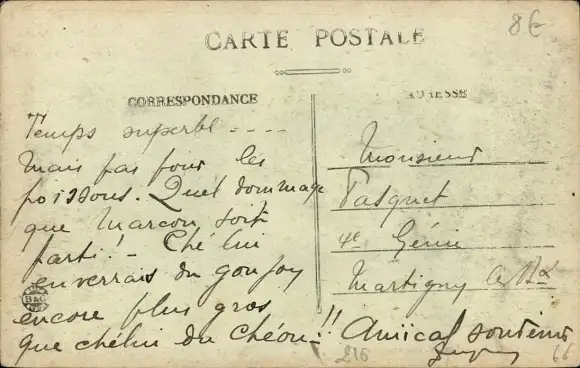 8€
CARTE POSTALE
CORRESPONDANCE
ADRESSE
Temps superbe ----
Mais pas pour les
poissons. Quel dommage
que Marcou soit
parti! - Ché lui
enverrais du goujoy
encore plus gros
que chélui du Chéou!!
Amical souvenir
Monsieur
Pasquet
4e Génie
Martigny les Bx
B&G
216
66